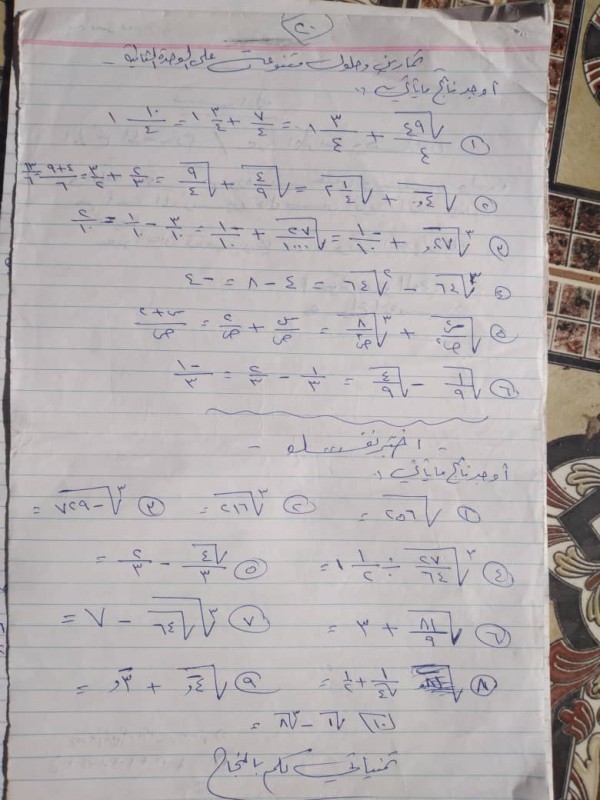 ٢
تمارين وحلول متنوعة على الوحدة الثانية -
أوجد ناتج ما يأتي :
① √٦٤/٤ + ١ ٣/٤ = ٨/٤ + ١ ٣/٤ = ١ ١٠/٤
② √٤,٠ + √(٢ ١/٤) = √(٤/٩) + √(٩/٤) = ٢/٣ + ٣/٢ = (٤+٩)/٦ = ١٣/٦
③ ³√٠,٢٧ + -١/١٠ = ³√(٢٧/١٠٠٠) + -١/١٠ = ٣/١٠ - ١/١٠ = ٢/١٠
④ ³√٦٤ - √٦٤ = ٤ - ٨ = -٤
⑤ √(س²/ص²) + ³√(٨/ص³) = س/ص + ٢/ص = (س+٢)/ص
⑥ √(١/٩) - √(٤/٩) = ١/٣ - ٢/٣ = -١/٣
- اختبر نفسك -
أوجد ناتج ما يأتي :
① √٢٥٦ = ② ³√٢١٦ = ③ ³√-٧٢٩ =
④ ³√(٢٧/٦٤) ÷ ١ ١/٢ = ⑤ √٤/٣ - ٢/٣ =
⑥ √(١٦/٩) + ٣ = ⑧ ³√٦٤ - ٨ =
⑦ √(١/٤ + ١/٢) = ⑨ √٠,٤ + ٠,٣ =
⑩ √١ - ³√٨ =
تمنياتي لكم بالنجاح